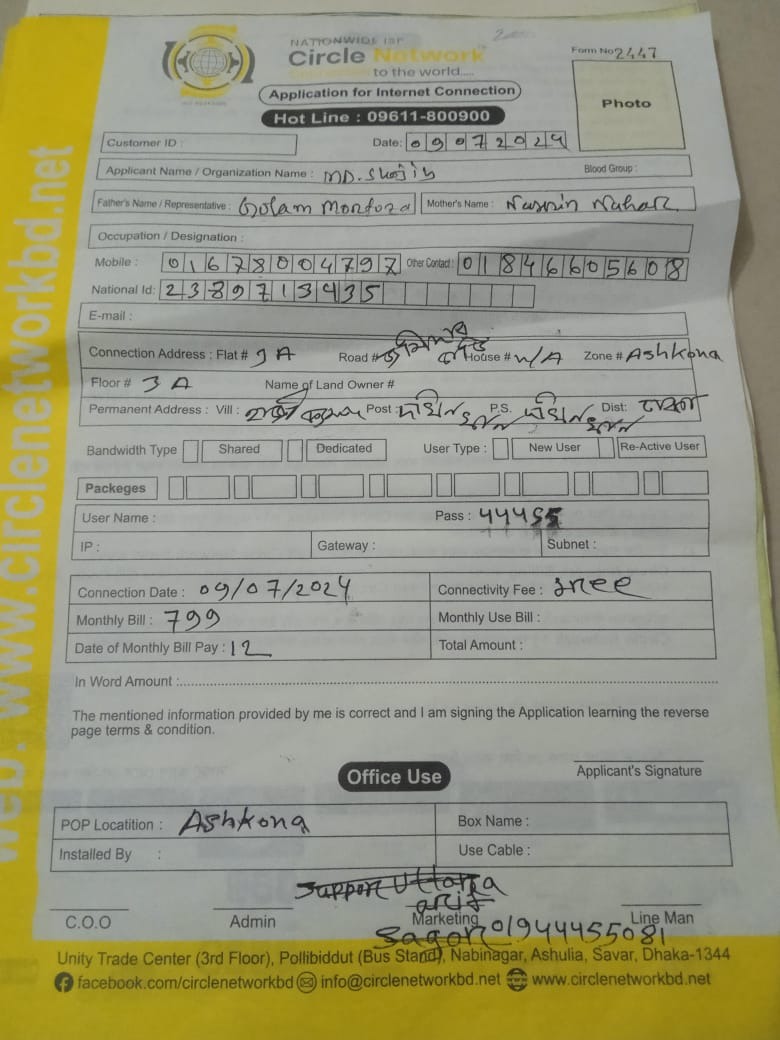 NATIONWIDE ISP
Circle Network
to the world....
Form No 2447
Application for Internet Connection
Hot Line : 09611-800900
Photo
Customer ID :
Date: 09072024
Applicant Name / Organization Name : MD. Shojib Blood Group :
Father's Name / Representative : Golam Mortoza Mother's Name : Nasrin Nahar
Occupation / Designation :
Mobile : 01678004797 Other Contact : 01846605608
National Id: 2389713435
E-mail :
Connection Address : Flat # 3A Road # House # N/A Zone # Ashkona
Floor # 3 A Name of Land Owner #
Permanent Address : Vill : Post : দক্ষিনখান P.S. দক্ষিনখান Dist: ঢাকা
Bandwidth Type Shared Dedicated User Type : New User Re-Active User
Packeges
User Name : Pass : 44455
IP : Gateway : Subnet :
Connection Date : 09/07/2024 Connectivity Fee : free
Monthly Bill : 799 Monthly Use Bill :
Date of Monthly Bill Pay : 12 Total Amount :
In Word Amount :
The mentioned information provided by me is correct and I am signing the Application learning the reverse
page terms & condition.
Applicant's Signature
Office Use
POP Locatition : Ashkona Box Name :
Installed By : Use Cable :
Support Uttara
arif
C.O.O Admin Marketing Line Man
Sagor 01944455081
Unity Trade Center (3rd Floor), Pollibiddut (Bus Stand), Nabinagar, Ashulia, Savar, Dhaka-1344
facebook.com/circlenetworkbd info@circlenetworkbd.net www.circlenetworkbd.net
web: www.circlenetworkbd.net